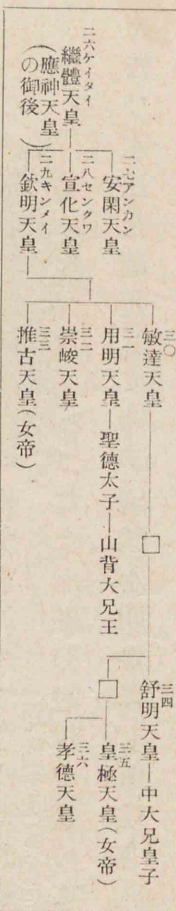 二六ケイタイ
繼體天皇
(應神天皇
の御後)
二七アンカン
安閑天皇
二八センクワ
宣化天皇
二九キンメイ
欽明天皇
三〇
敏達天皇
三一
用明天皇―聖德太子―山背大兄王
三二
崇峻天皇
三三
推古天皇(女帝)
三四
舒明天皇―中大兄皇子
三五
皇極天皇(女帝)
三六
孝德天皇